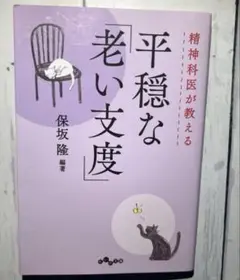 精神科医が教える
平穏な
「老い支度」
保坂隆 編著